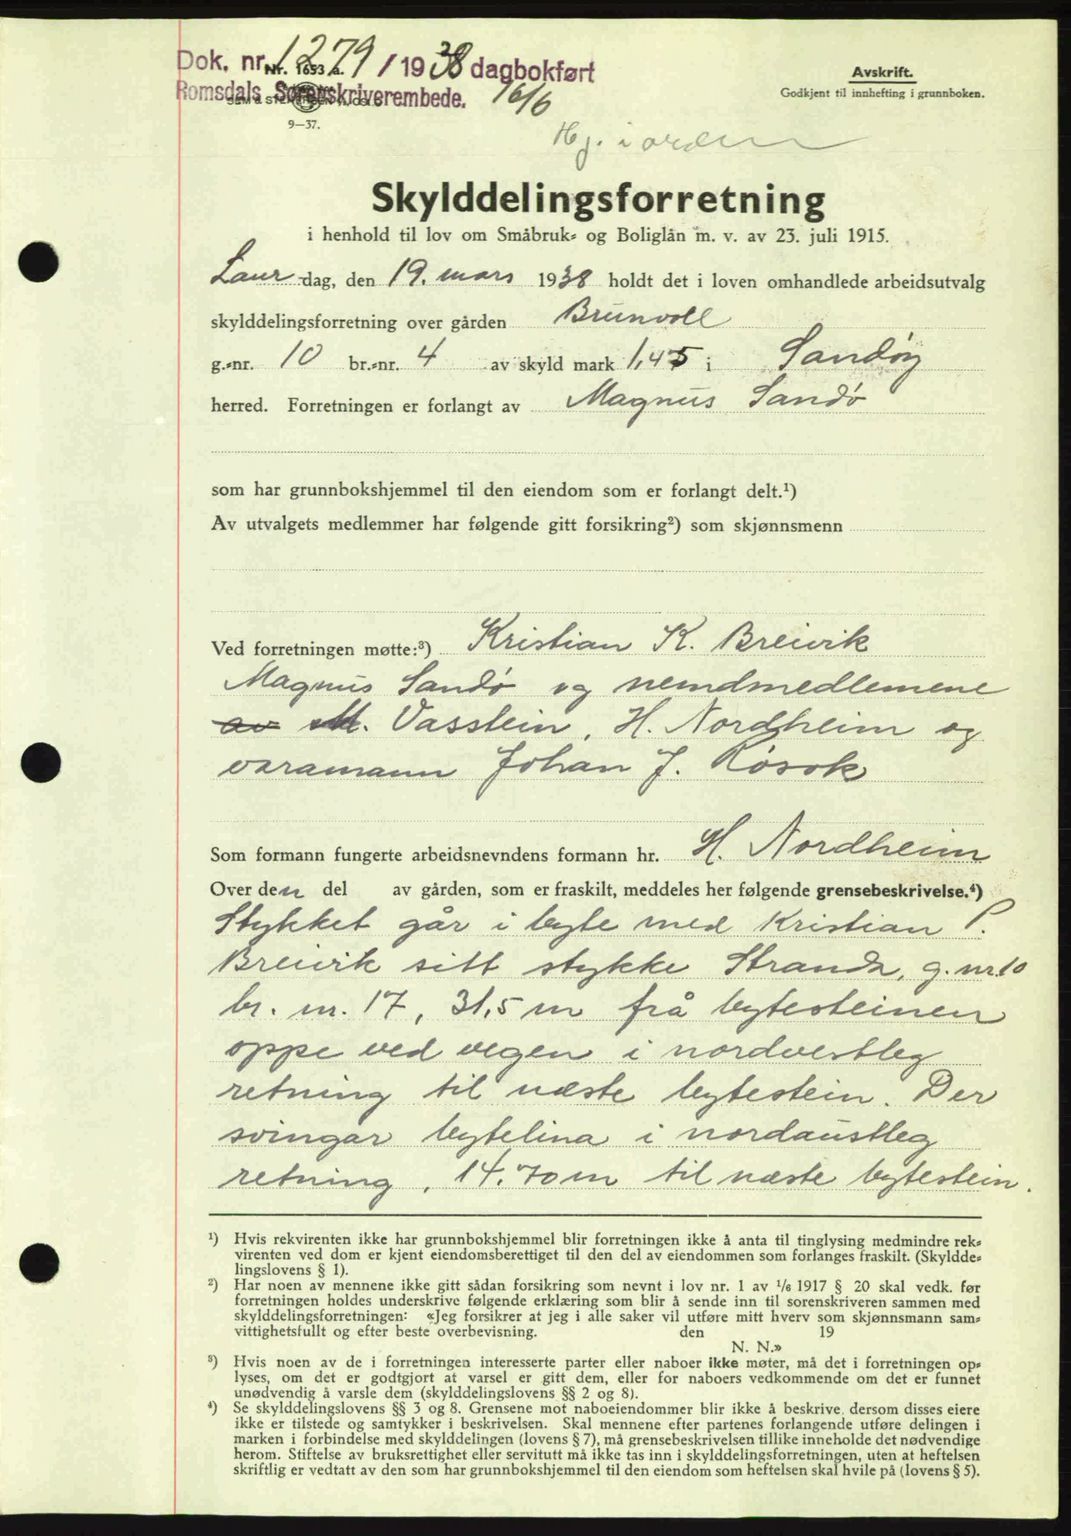 Dok. nr. 1279/1938 dagbokført
Nr. 1653 a.
Romsdals Sorenskriverembede. 16/6
9—37.
Avskrift.
Godkjent til innhefting i grunnboken.
Hj. i orden
Skylddelingsforretning
i henhold til lov om Småbruk- og Boliglån m. v. av 23. juli 1915.
Laurdag, den 19. mars 1938 holdt det i loven omhandlede arbeidsutvalg
skylddelingsforretning over gården Brunvoll
g.-nr. 10 br.-nr. 4 av skyld mark 1,45 i Sandøy
herred. Forretningen er forlangt av Magnus Sandø
som har grunnbokshjemmel til den eiendom som er forlangt delt.¹)
Av utvalgets medlemmer har følgende gitt forsikring²) som skjønnsmenn
Ved forretningen møtte:³) Kristian K. Breivik
Magnus Sandø og nemdmedlemene
av M. Vasstein, H. Nordheim og
varamann Johan J. Røsok
Som formann fungerte arbeidsnevndens formann hr. H. Nordheim
Over den del av gården, som er fraskilt, meddeles her følgende grensebeskrivelse.⁴)
Stykket går i byte med Kristian P.
Breivik sitt stykke Stranda, g. nr. 10
br. nr. 17, 31,5 m frå bytesteinen
oppe ved vegen i nordvestleg
retning til næste bytestein. Der
svingar bytelina i nordaustleg
retning, 14,70 m til næste bytestein.
¹) Hvis rekvirenten ikke har grunnbokshjemmel blir forretningen ikke å anta til tinglysing medmindre rek-
virenten ved dom er kjent eiendomsberettiget til den del av eiendommen som forlanges fraskilt. (Skyldde-
lingslovens § 1).
²) Har noen av mennene ikke gitt sådan forsikring som nevnt i lov nr. 1 av 1/6 1917 § 20 skal vedk. før
forretningen holdes underskrive følgende erklæring som blir å sende inn til sorenskriveren sammen med
skylddelingsforretningen: «Jeg forsikrer at jeg i alle saker vil utføre mitt hverv som skjønnsmann sam-
vittighetsfullt og efter beste overbevisning. den 19
N. N.»
³) Hvis noen av de i forretningen interesserte parter eller naboer ikke møter, må det i forretningen op-
lyses, om det er godtgjort at varsel er gitt dem, eller for naboers vedkommende om det er funnet
unødvendig å varsle dem (skylddelingslovens §§ 2 og 8).
⁴) Se skylddelingslovens §§ 3 og 8. Grensene mot naboeiendommer blir ikke å beskrive, dersom disses eiere
ikke er tilstede og samtykker i beskrivelsen. Skal mennene efter partenes forlangende utføre delingen i
marken i forbindelse med skylddelingen (lovens § 7), må grensebeskrivelsen tillike inneholde det nødvendige
herom. Stiftelse av bruksrettighet eller servitutt må ikke tas inn i skylddelingsforretningen, uten at heftelsen
skriftlig er vedtatt av den som har grunnbokshjemmel til den eiendom som heftelsen skal hvile på (lovens § 5).